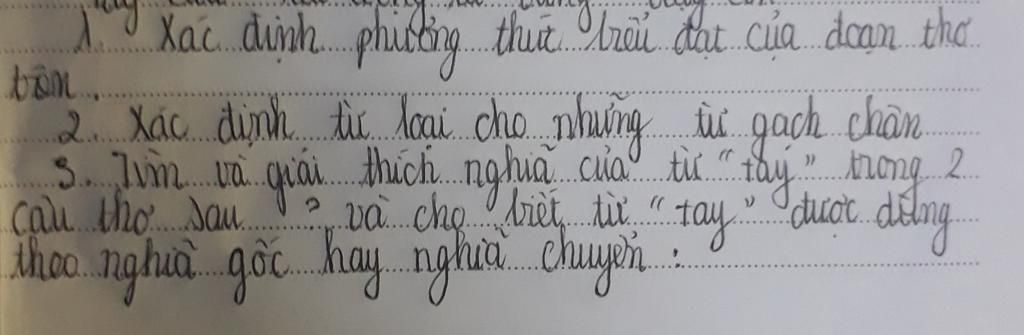 1. Xác định phương thức biểu đạt của đoạn thơ
trên.
2. Xác định từ loại cho những từ gạch chân
3. Tìm và giải thích nghĩa của từ "tay" trong 2
câu thơ sau ? và cho biết từ "tay" được dùng
theo nghĩa gốc hay nghĩa chuyển :